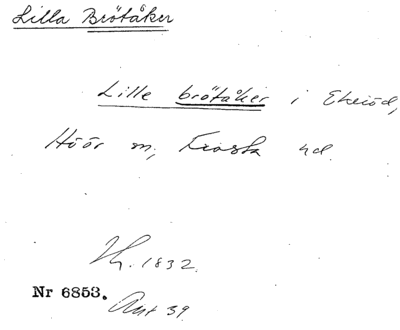 Lilla Brötåker
Lille brötåker i Ekeröd,
Höör sn, Frosta hd.
1832.
Nr 6853.
Ant 39